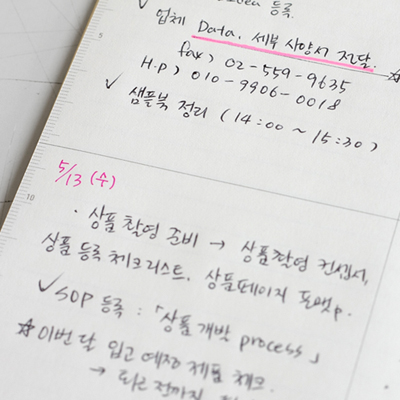 등록.
✓ 업체 Data. 세부 사양서 전달. ☆
fax) 02-559-9635
H.P) 010-9906-0018
✓ 샘플북 정리 (14:00 ~ 15:30)
5/13 (수)
· 상품 촬영 준비 → 상품촬영 컨셉서,
상품 등록 체크리스트. 상품페이지 포맷p.
✓ SOP 등록 : 「상품 개발 process」
☆ 이번 달 입고 예정 제품 체크.
→ 퇴근 전까지